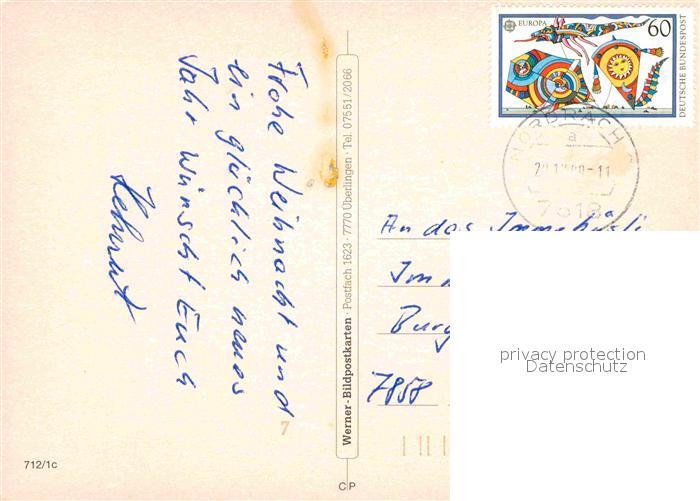 Frohe Weihnacht und
ein glücklich neues
Jahr wünscht Euch
Helmut
712/1c
Werner-Bildpostkarten · Postfach 1623 · 7770 Überlingen · Tel. 07551/2066
7
C P
EUROPA 60
DEUTSCHE BUNDESPOST
NORDRACH
a
7618
An das
Im
Burg
7858
privacy protection
Datenschutz